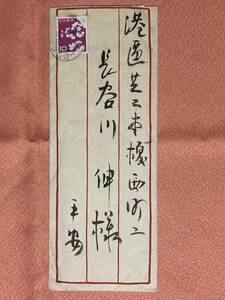 港區芝二本榎西町二
長谷川伸様
平安
10